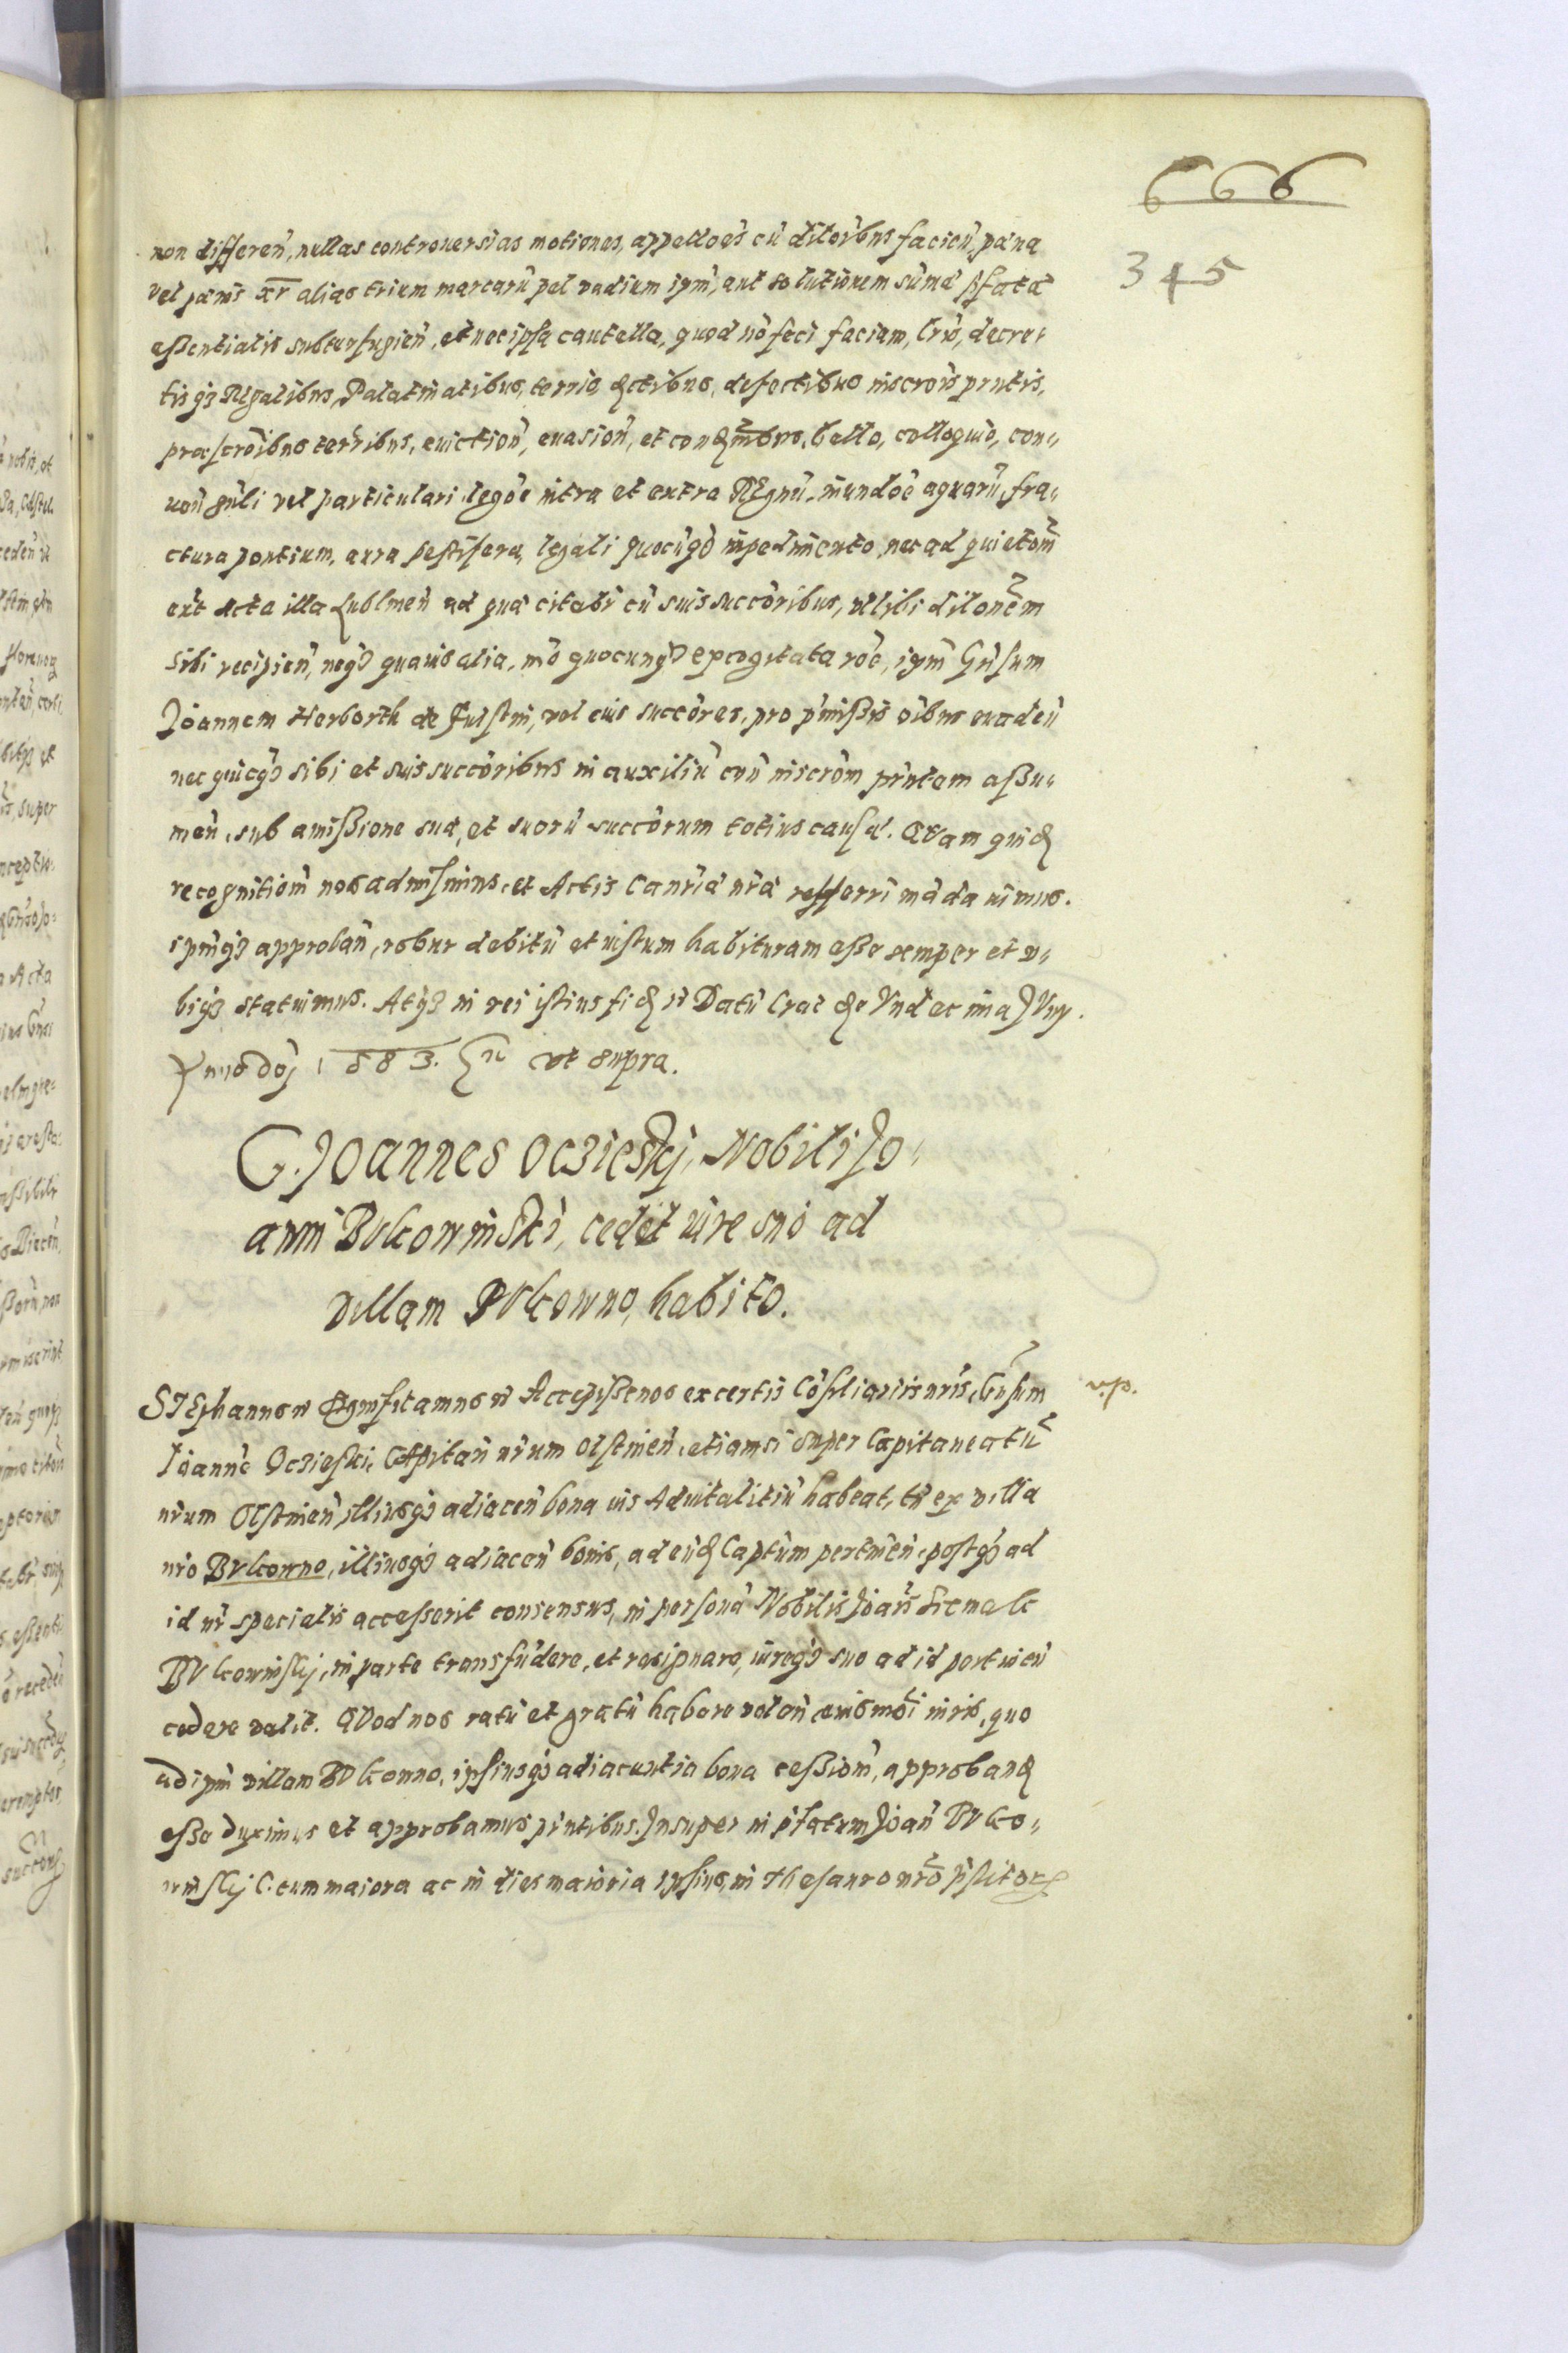 666
345
non differen̄, nullas controuersias motiones, appelloēs cū ditoribus facien̄, pœna
vel pœnis XV alias trium marcarū pel vadium ipm̄, aut solutionem sūmæ p̄fatæ
essentialis subterfugien̄, et nec ipsa cautella, quod nō feci faciam, lr̄is, decre-
tisq3 REgalibus, Palatinatibus, terris, defectibus inscrōis pn̄tis,
præscrōibus terribus, euiction̄, euasion̄, et bello, colloquio, con-
uon̄ gn̄li vel particulari, legōe intra et extra REgnū, inundōe aquarū, fra-
ctura pontium, aura pestifera, legali quocūq3 impedimento, nec ad quietom̄
ext̄ Acta illa Lublinen̄ ad quæ citabr̄ cū suis succōribus, vel sibi dilonēm
sibi recipien̄, neq3 quauis alia, mō quocunq3 excogitata rōe, ipm̄ Gn̄sum
Joannem Herborth de Fulstin, vel eius succōres, pro p̄missis oībus euaden̄
nec quicq3 sibi et suis succōribus in auxiliū cōn̄ inscrōm pn̄tem assu-
men̄, sub amissione sua, et suorū succōrum totius causæ. QVam quidē
recognitiom̄ nos admisimus, et Actis Canr̄iæ nr̄æ refferri mādauimus.
ipm̄q3 approban̄, robur debitū et iustum habituram esse semper et v-
biq3 statuimus. Atq3 in rei istius fidē Datū Crac̄ die Vndecima JVny.
Anno dōj 1583. ut supra.
G. JOannes Oczieskj, Nobili Jo-
anni BVkowinski, cedit iure suo ad
villam BVkowno, habito.
STEphannus Significamus Accepisse nos ex certis Cōsiliariis nr̄is, Gn̄sum
v.p.
Joannē Oczieski, CApitan̄ nr̄um Olstinen̄, etiamsi super Capitaneatū
nr̄um Olstinen̄ illiusq3 adiacen̄ bona ius Aduitalitiū habeat, tn̄ ex villa
nr̄a BVkowno, illiusq3 adiacen̄ bonis, ad eūdē Captūm pertinen̄, postq3 ad
id nr̄ specialis accesserit consensus, in personā Nobilis Joan̄is
BVkowinskj, in parte transfūdere, et resignare, iureq3 suo ad id pertinen̄
cedere velit. QVod nos ratū et gratū habere volen̄ euismōi iuris, quo
ad ipm̄ villam BVkowno, ipsiusq3 adiacentia bona cessiom̄, approbandē
esse duximus et approbamus pn̄tibus. Jnsuper in p̄fatum Joan̄ BVko-
winskj C. cum maiora ac in dies maioria ipsius, in Thesauro nr̄o